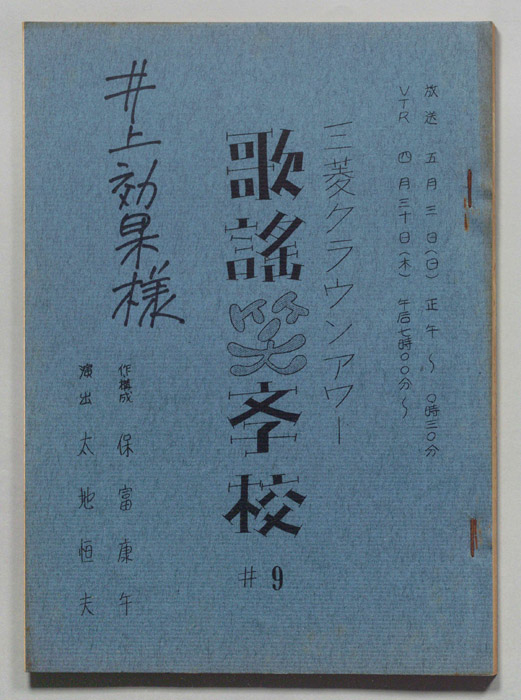 放送 五月三日(日) 正午〜 〇時三〇分
VTR 四月三十日(木) 午后七時〇〇分〜
三菱クラウンアワー
歌謡笑学校
#9
井上効果様
作・構成 保富康午
演出 太地恒夫